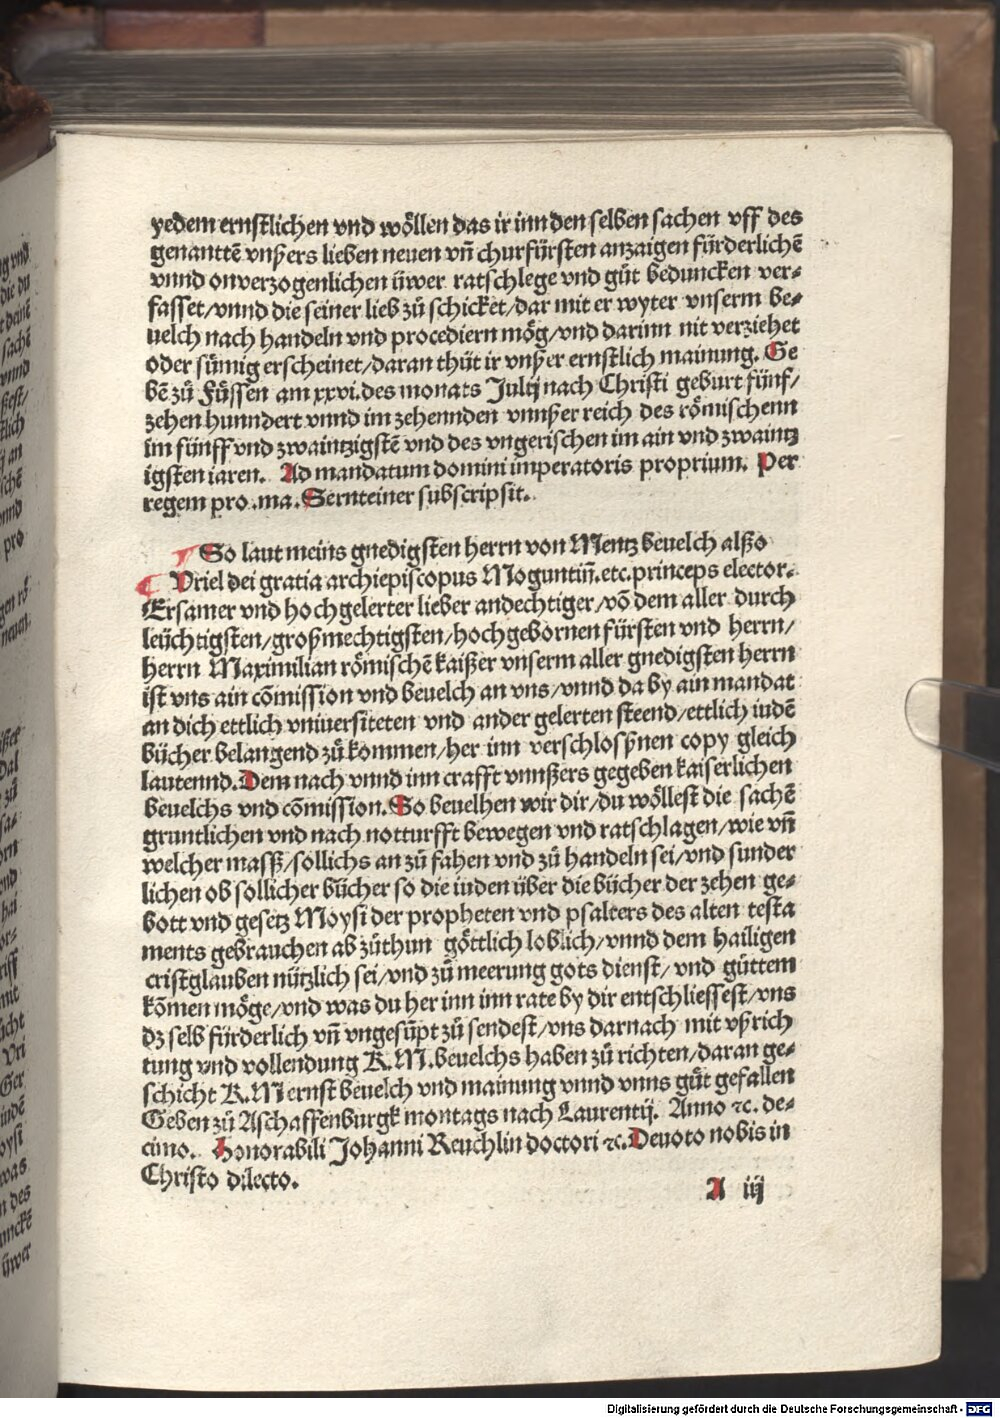 yedem ernstlichen vnd wöllen das ir inn den selben sachen vff des
genanttē vnßers lieben neuen vn̄ churfürsten anzaigen fürderlichē
vnnd onverzogenlichen üwer ratschlege vnd gůt beduncken ver⸗
fasset/vnnd die seiner lieb zů schicket/dar mit er wyter vnserm be⸗
uelch nach handeln vnd procediern mög/vnd darinn nit verziehet
oder sümig erscheinet/daran thůt ir vnßer ernstlich mainung. Ge
bē zů Füssen am xxvi.des monats Julij nach Christi geburt fünf/
zehen hunndert vnnd im zehennden vnnßer reich des römischenn
im fünff vnd zwaintzigstē vnd des vngerischen im ain vnd zwaintz
igsten iaren. Ad mandatum domini imperatoris proprium. Per
regem pro.ma. Sernteiner subscripsit.
So laut meins gnedigsten herrn von Mentz beuelch alßo
Vriel dei gratia archiepiscopus Moguntin̄.etc.princeps elector.
Ersamer vnd hochgelerter lieber andechtiger/vō dem aller durch
leüchtigsten/großmechtigsten/hochgebornen fürsten vnd herrn/
herrn Maximilian römischē kaißer vnserm aller gnedigsten herrn
ist vns ain cōmission vnd beuelch an vns/vnnd da by ain mandat
an dich ettlich vniuersiteten vnd ander gelerten steend/ettlich iudē
bücher belangend zů kommen/her inn verschloßnen copy gleich
lautennd. Dem nach vnnd inn crafft vnnßers gegeben kaiserlichen
beuelchs vnd cōmission. So beuelhen wir dir/du wöllest die sachē
gruntlichen vnd nach notturfft bewegen vnd ratschlagen/wie vn̄
welcher masß/sollichs an zů fahen vnd zů handeln sei/vnd sunder
lichen ob sollicher bücher so die iuden über die bücher der zehen ge⸗
bott vnd gesetz Moysi der propheten vnd psalters des alten testa
ments gebrauchen ab zůthun göttlich loblich/vnnd dem hailigen
cristglauben nützlich sei/vnd zů meerung gots dienst/vnd gůttem
kōmen möge/vnd was du her inn inn rate by dir entschliessest/vns
dz selb fürderlich vn̄ vngesůpt zů sendest/vns darnach mit vßrich
tung vnd vollendung K.M.beuelchs haben zů richten/daran ge⸗
schicht K.M ernst beuelch vnd mainung vnnd vnns gůt gefallen
Geben zů Aschaffenburgk montags nach Laurentij. Anno ⁊c. de⸗
cimo. Honorabili Johanni Reuchlin doctori ⁊c. Deuoto nobis in
Christo dilecto.
A iij
Digitalisierung gefördert durch die Deutsche Forschungsgemeinschaft - DFG